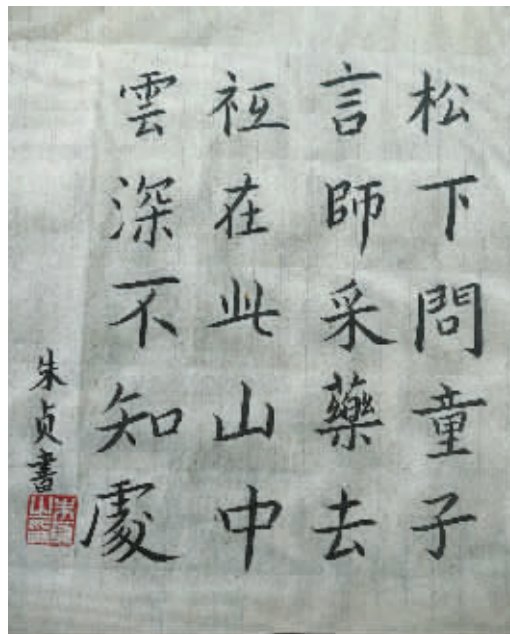 松下問童子
言師采藥去
祇在此山中
雲深不知處
朱贞書